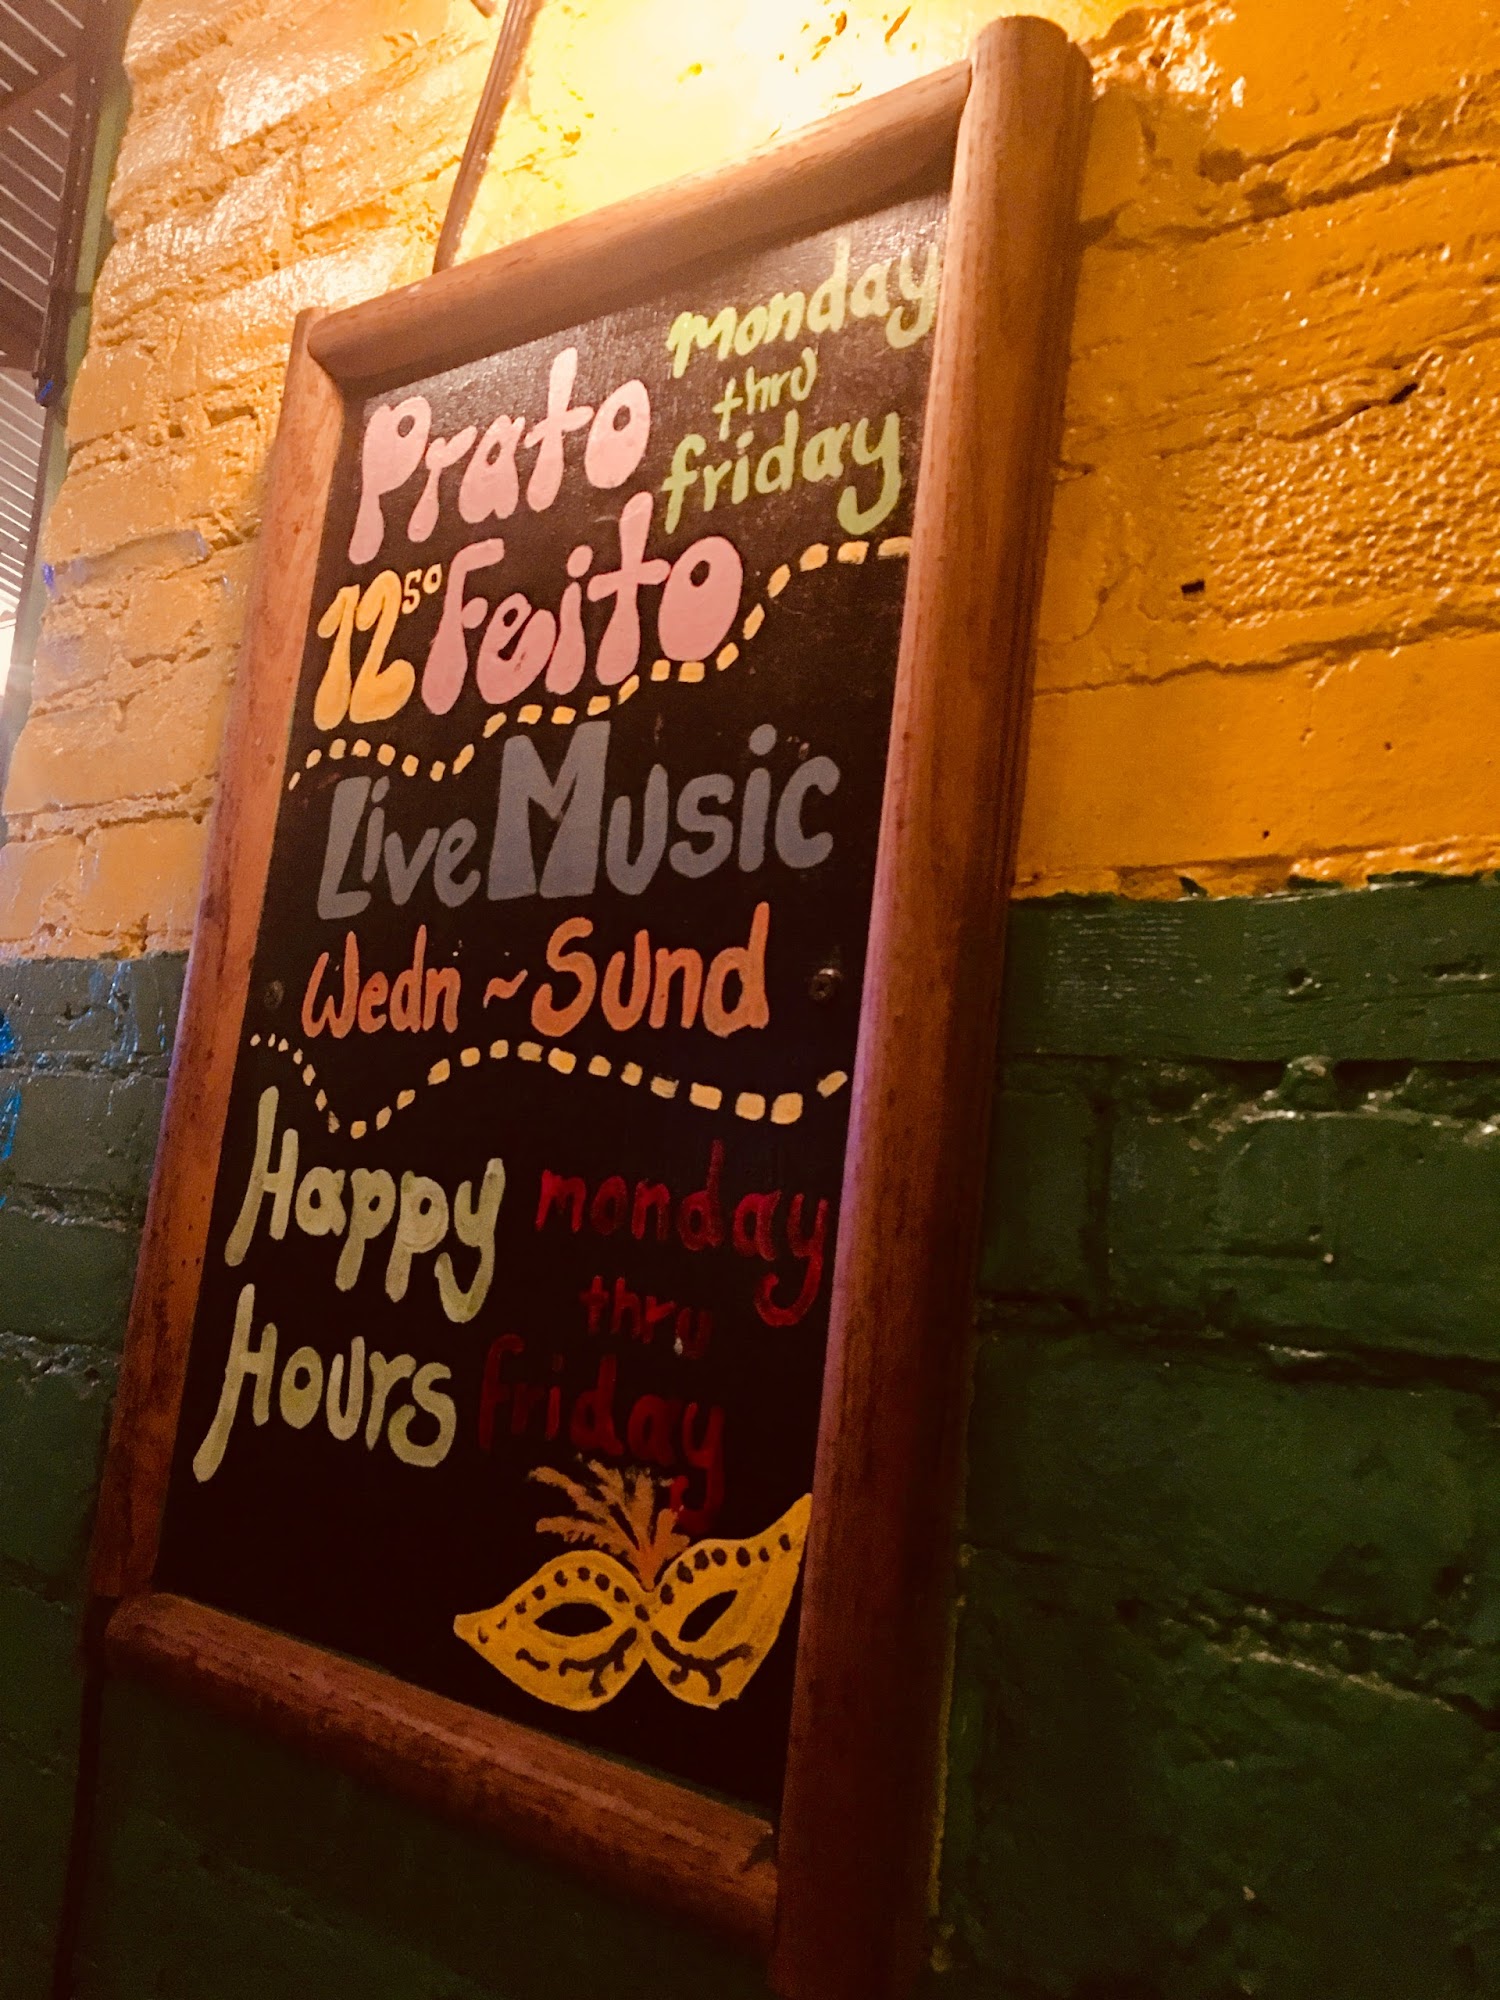 Prato monday
thru
friday
12⁵⁰ Feito
Live Music
Wedn ~ Sund
Happy monday
thru
Hours friday